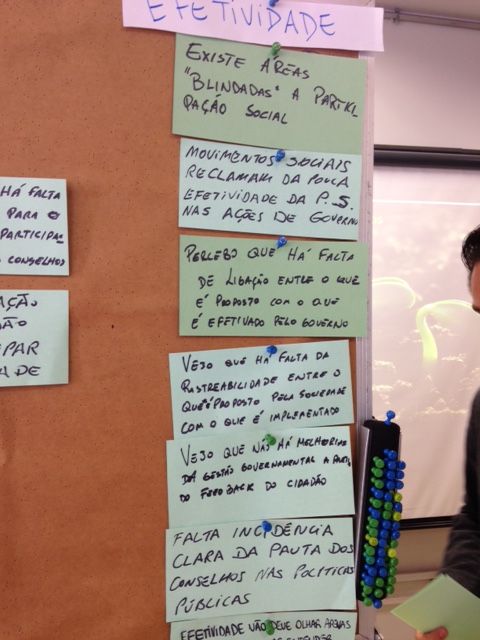 EFETIVIDADE
EXISTE ÁREAS
"BLINDADAS" A PARTICI
PAÇÃO SOCIAL
MOVIMENTOS SOCIAIS
RECLAMAM DA POUCA
EFETIVIDADE DA P.S.
NAS AÇÕES DE GOVERNO
PERCEBO QUE HÁ FALTA
DE LIGAÇÃO ENTRE O QUE
É PROPOSTO COM O QUE
É EFETIVADO PELO GOVERNO
VEJO QUE HÁ FALTA DA
RASTREABILIDADE ENTRE O
QUE É PROPOSTO PELA SOCIEDADE
COM O QUE É IMPLEMENTADO
VEJO QUE NÃO HÁ MELHORIAS
DA GESTÃO GOVERNAMENTAL A PARTIR
DO FEEDBACK DO CIDADÃO
FALTA INCIDÊNCIA
CLARA DA PAUTA DOS
CONSELHOS NAS POLÍTICAS
PÚBLICAS
EFETIVIDADE NÃO DEVE OLHAR APENAS
HÁ FALTA
PARA O
PARTICIPA
CONSELHOS
AÇÃO
ÃO
PAR
A DE